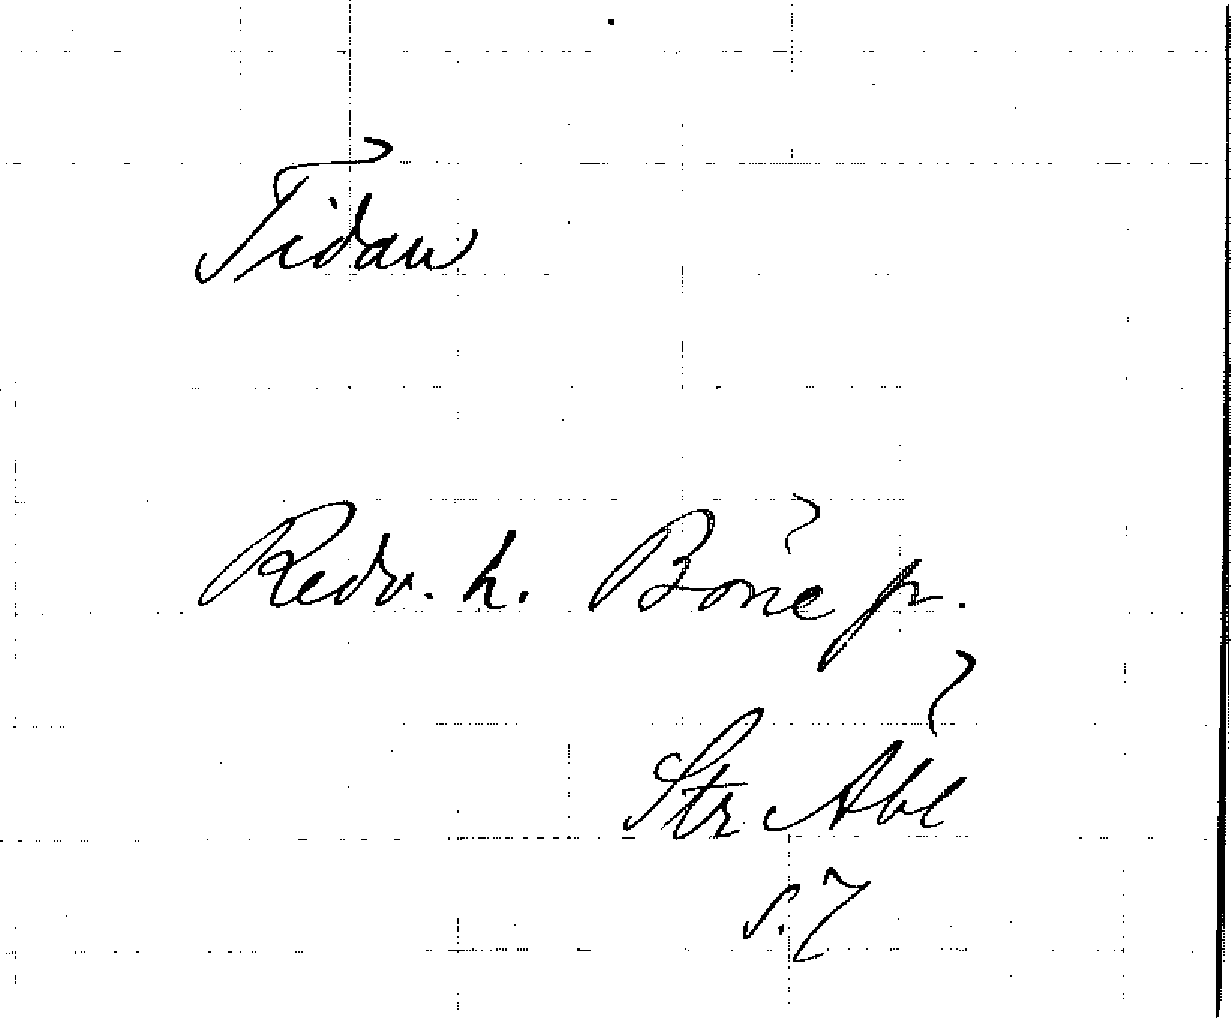 Tidan
Redv. h. Böne sn.
Str Åbl
s. 7